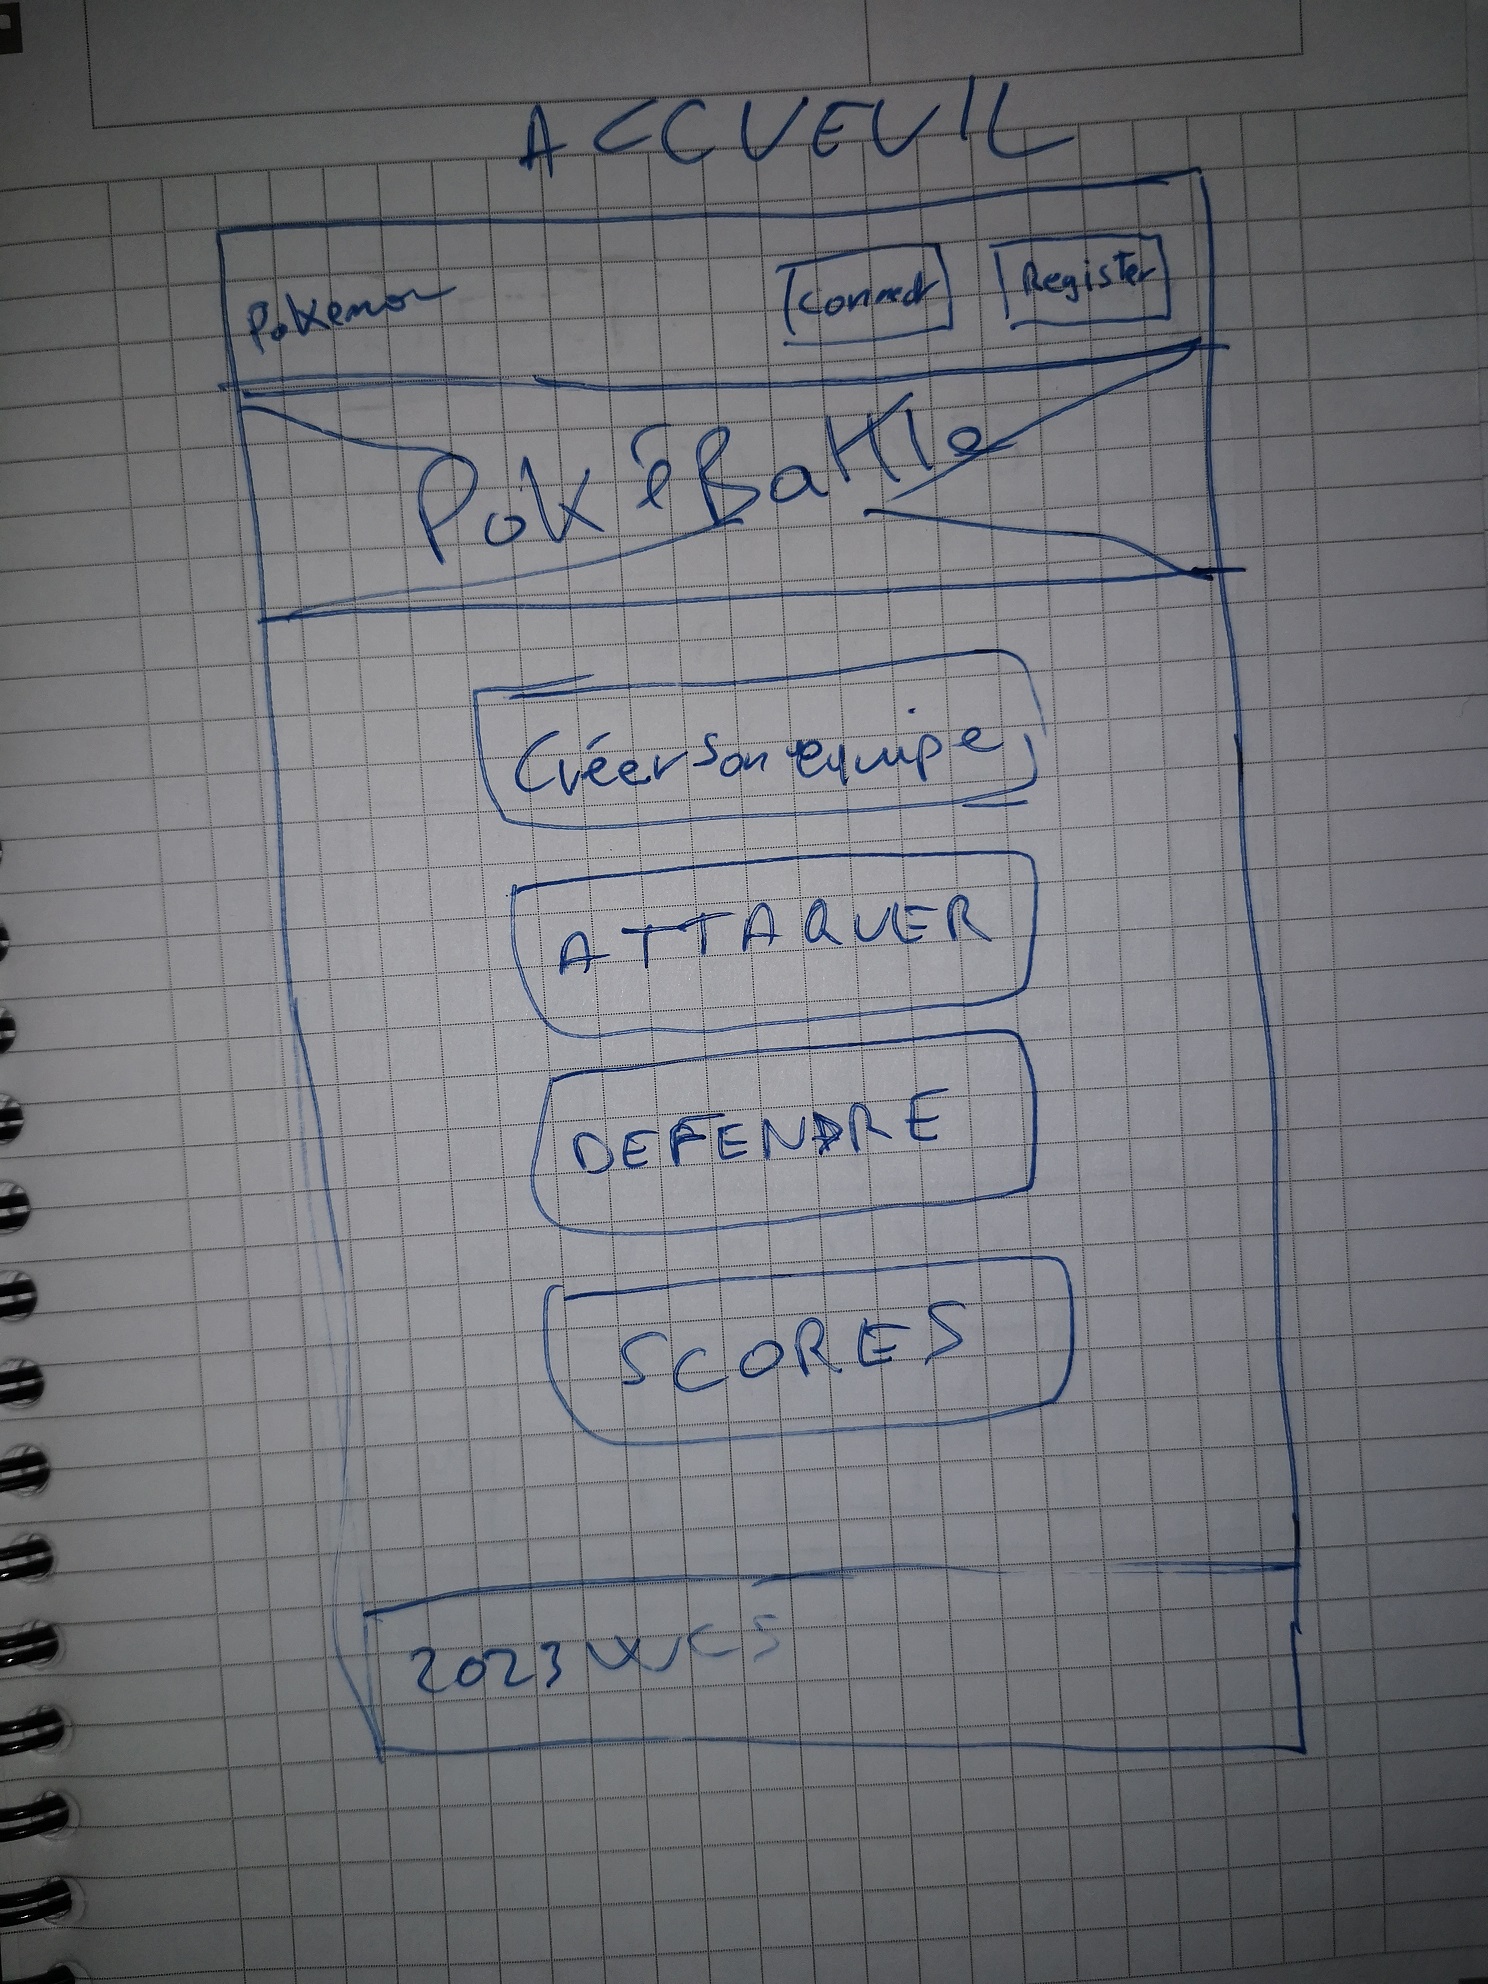 ACCUEUIL
Pokemon Connect Register
PokéBattle
Créer son equipe
ATTAQUER
DEFENDRE
SCORES
2023 WCS